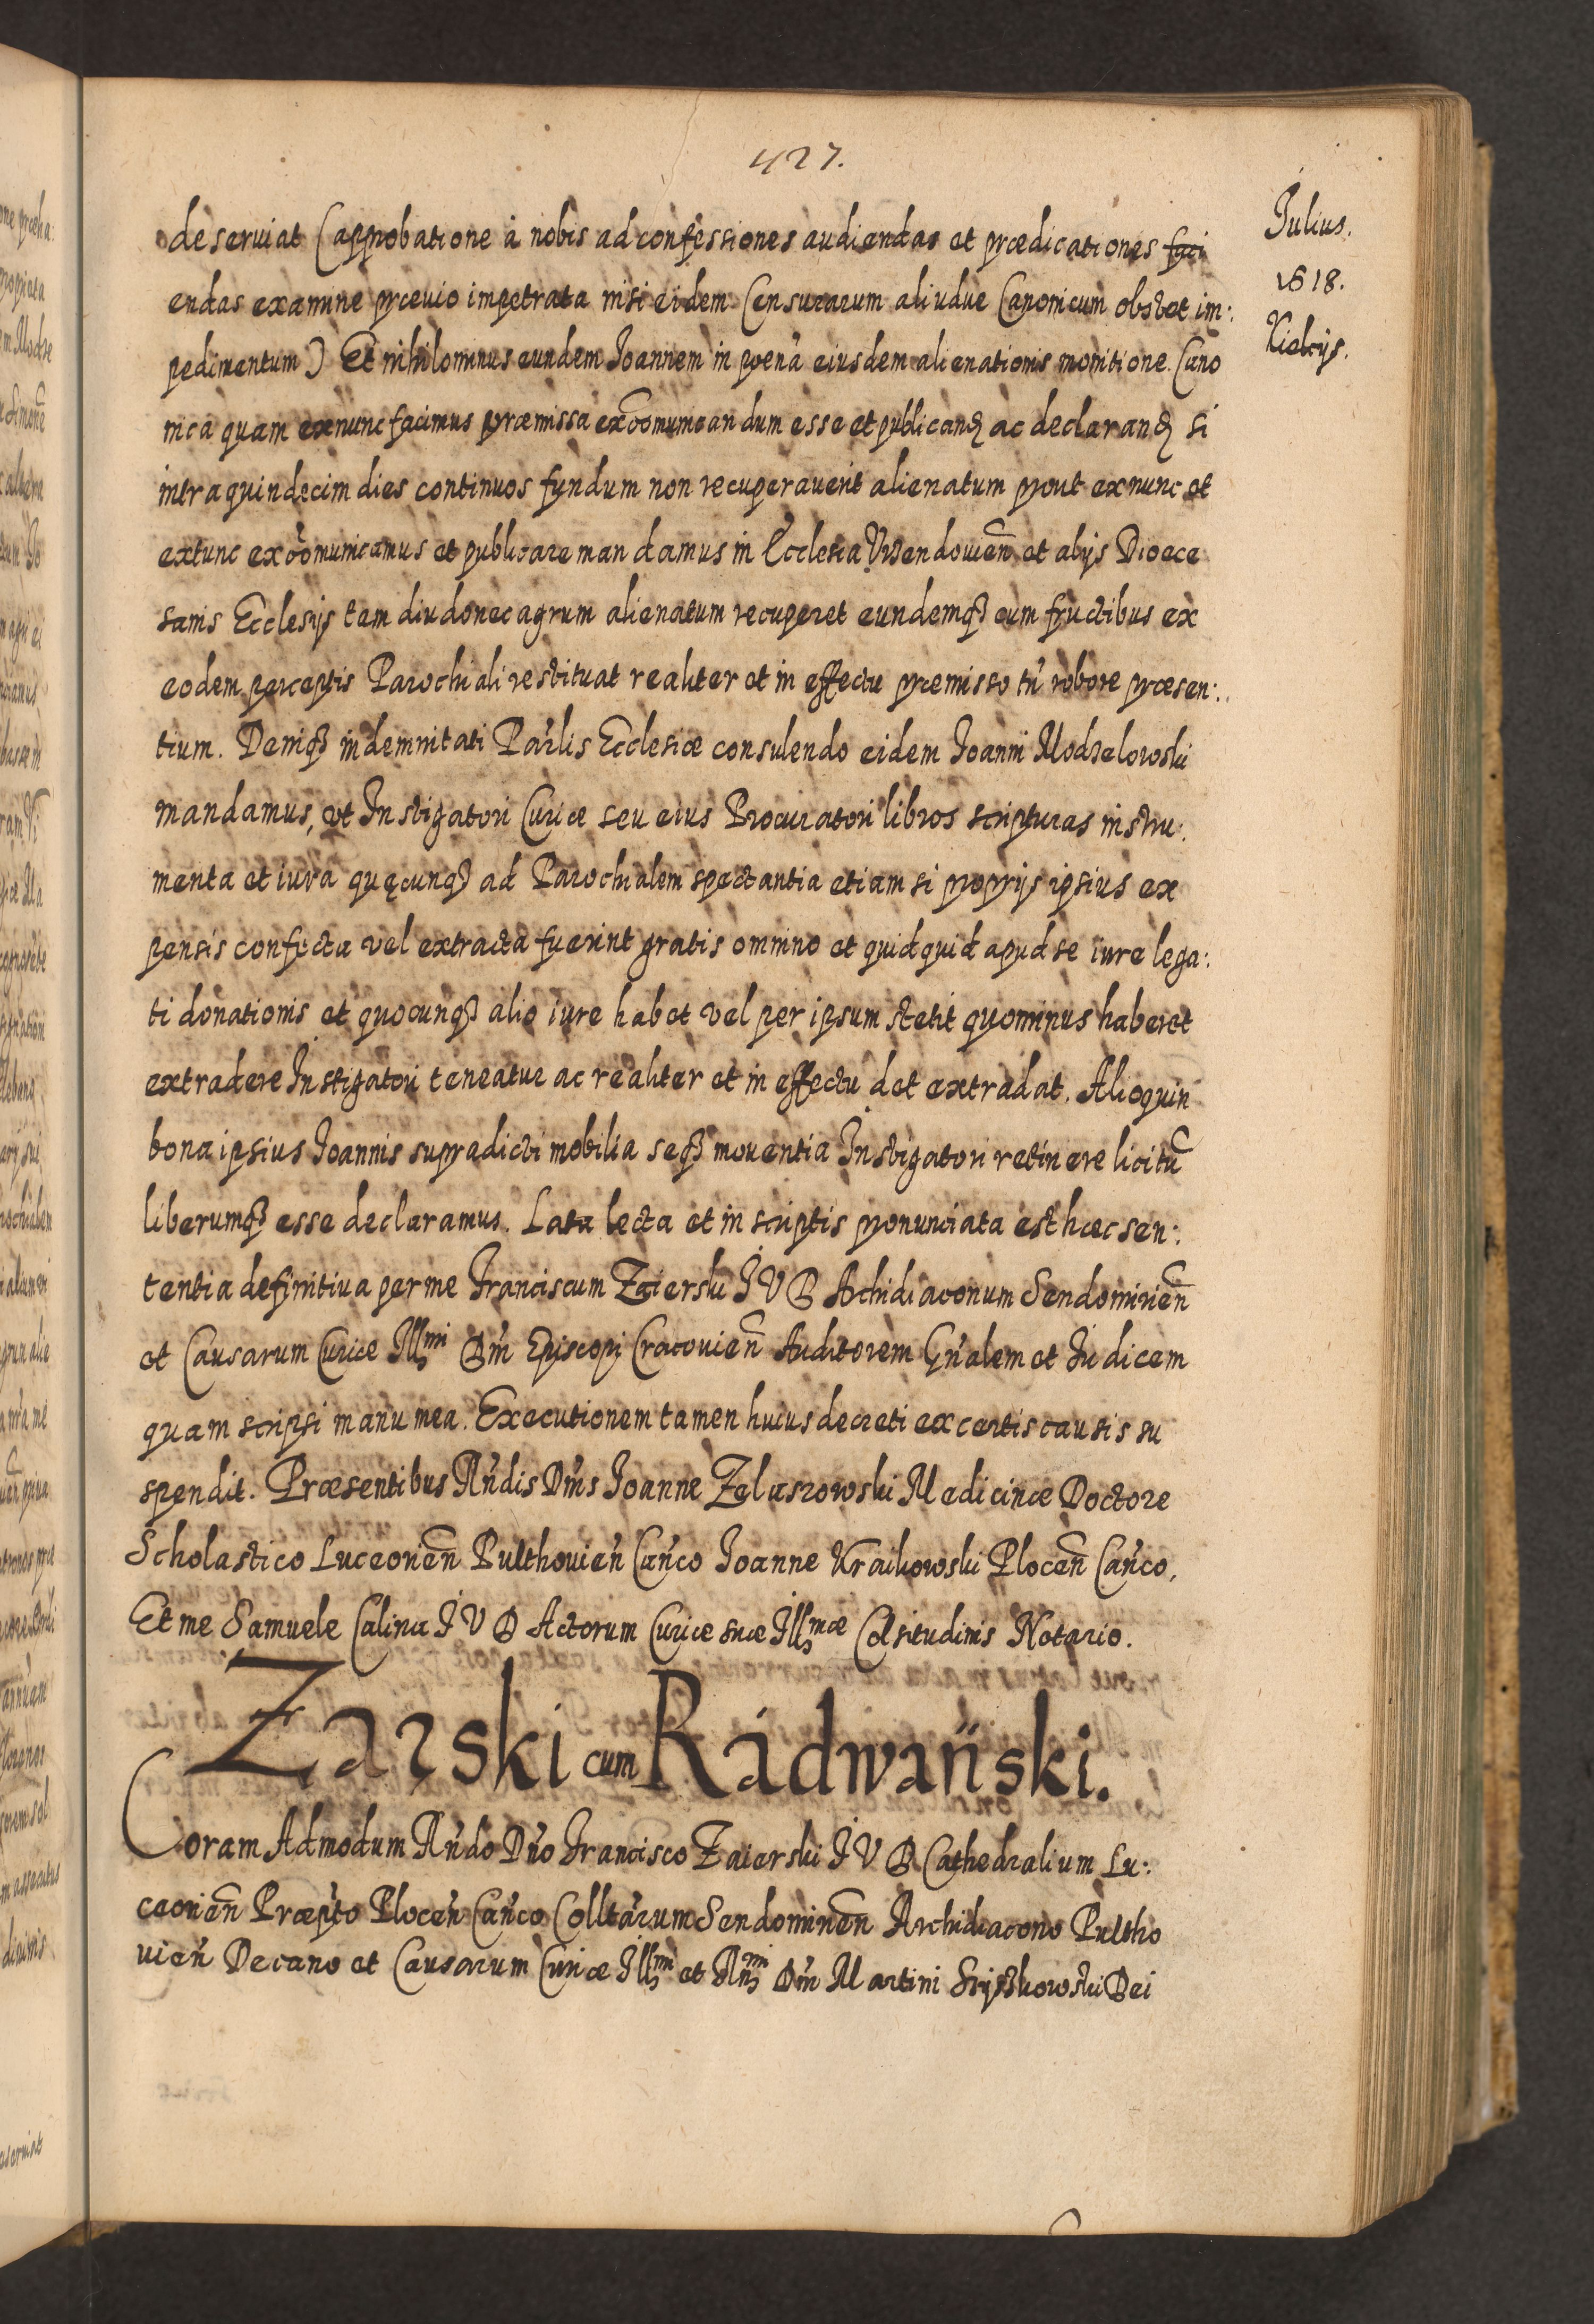 427.
Julius.
1618.
Kielcijs.
deseruiat (approbatione à nobis ad confessiones audiendas et prædicationes faci
endas examine præuio impetrata nisi eidem Censurarum aliudue Canonicum obstet im:
pedimentum) Et nihilominus eundem Joannem in pœnâ eiusdem alienationis monitione Cano
nicâ quam exnunc facimus præmissa exco͠municandum esse et publicandꝫ ac declarandꝫ si
intra quindecim dies continuos fundum non recuperauerit alienatum prout exnunc et
extunc exco͠municamus et publicare mandamus in Ecclesia Wrendouien͠ et alijs Diœce
sanis Ecclesijs tam diu donec agrum alienatum recuperet eundemqꝫ cum fructibus ex
eodem perceptis Parochiali restituat realiter et in effectu præmisso tn̉ robore præsen:
tium. Deniqꝫ indemnitati Par̉lis Ecclesiæ consulendo eidem Joanni Modzelowski
mandamus, vt Instigatori Curiæ seu eius Procuratori libros scripturas instru:
menta et iura quęcunqꝫ ad Parochialem spectantia etiam si proprijs ipsius ex
pensis confecta vel extracta fuerint gratis omnino et quidquid apud se iure lega:
ti donationis et quocunqꝫ alio iure habet vel per ipsum stetit quominus haberet
extradere Instigatori teneatur ac realiter et in effectu det extradat. Alioquin
bona ipsius Joannis supradicti mobilia seqꝫ mouentia Instigatori retinere licitu͠
liberumqꝫ esse declaramus. Lata lecta et in scriptis pronunciata est hæc sen:
tentia definitiua per me Franciscum Zaierski J V D Archidiaconum Sendomirien͠
et Causarum Curiæ Illmi Dn̉i Episcopi Cracouien͠ Auditorem Gn̉alem et Judicem
quam scripsi manu mea. Executionem tamen huius decreti ex certis causis su
spendit. Præsentibus Rn̉dis Dn̉is Joanne Zeluszowski Medicinæ Doctore
Scholastico Luceorien͠ Pulthouien̉ Can̉co Joanne Kraikowski Plocen͠ Can̉co,
Et me Samuele Calina J V D Actorum Curiæ suæ Illmæ Celsitudinis Notario.
Zarski cum Rádwański.
Coram Admodum Rn̉do Dn̉o Francisco Zaierski J V D Cathedralium Lu:
ceorien͠ Præp̉to Plocen̉ Can̉co Collta̓rum Sendomirien͠ Archidiacono Pultho
uien̉ Decano et Causarum Curiæ Illmi et Rmi Dn̉i Martini Szyszkowski Dei